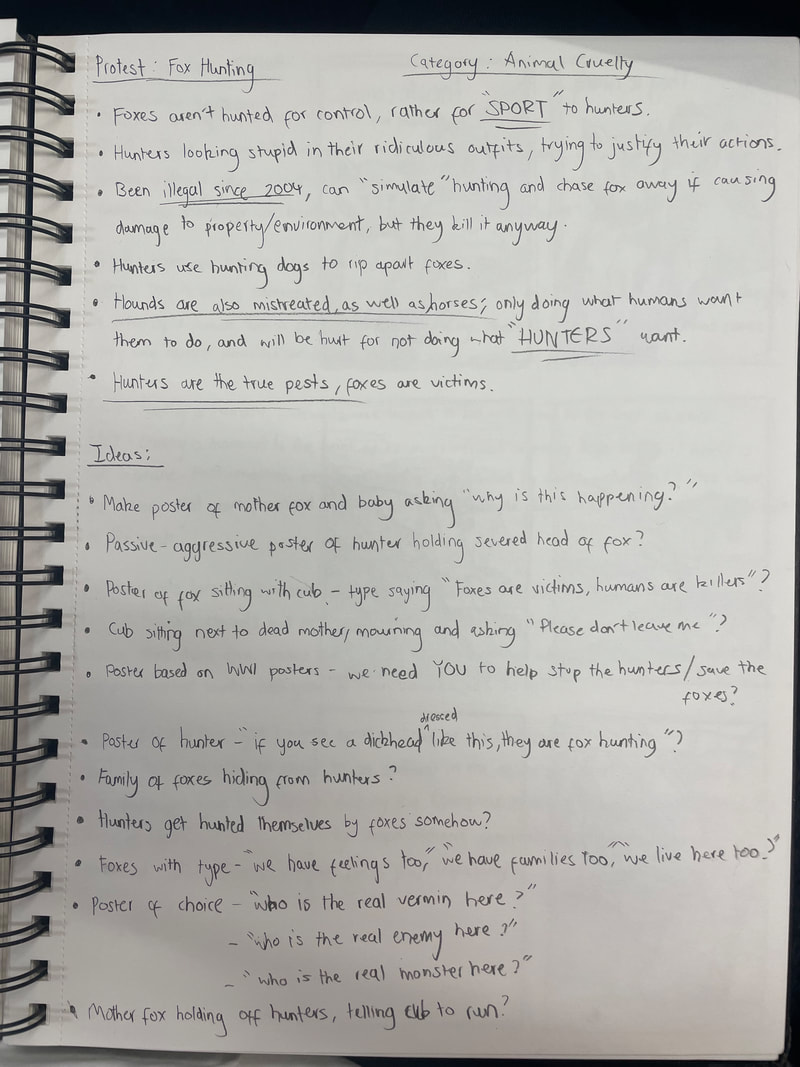 Protest: Fox Hunting
Category: Animal Cruelty
• Foxes aren't hunted for control, rather for "SPORT" to hunters.
• Hunters looking stupid in their ridiculous outfits, trying to justify their actions.
• Been illegal since 2004, can "simulate" hunting and chase fox away if causing
damage to property/environment, but they kill it anyway.
• Hunters use hunting dogs to rip apart foxes.
• Hounds are also mistreated, as well as horses; only doing what humans want
them to do, and will be hurt for not doing what "HUNTERS" want.
• Hunters are the true pests, foxes are victims.
Ideas:
• Make poster of mother fox and baby asking "why is this happening?"
• Passive-aggressive poster of hunter holding severed head of fox?
• Poster of fox sitting with cub - type saying "Foxes are victims, humans are killers"?
• Cub sitting next to dead mother, mourning and asking "Please don't leave me"?
• Poster based on WWI posters - we need YOU to help stop the hunters/save the
foxes?
• Poster of hunter - "if you see a dickhead dressed like this, they are fox hunting"?
• Family of foxes hiding from hunters?
• Hunters get hunted themselves by foxes somehow?
• Foxes with type - "we have feelings too," "we have families too," "we live here too."?
• Poster of choice - "who is the real vermin here?"
- "who is the real enemy here?"
- "who is the real monster here?"
• Mother fox holding off hunters, telling cub to run?